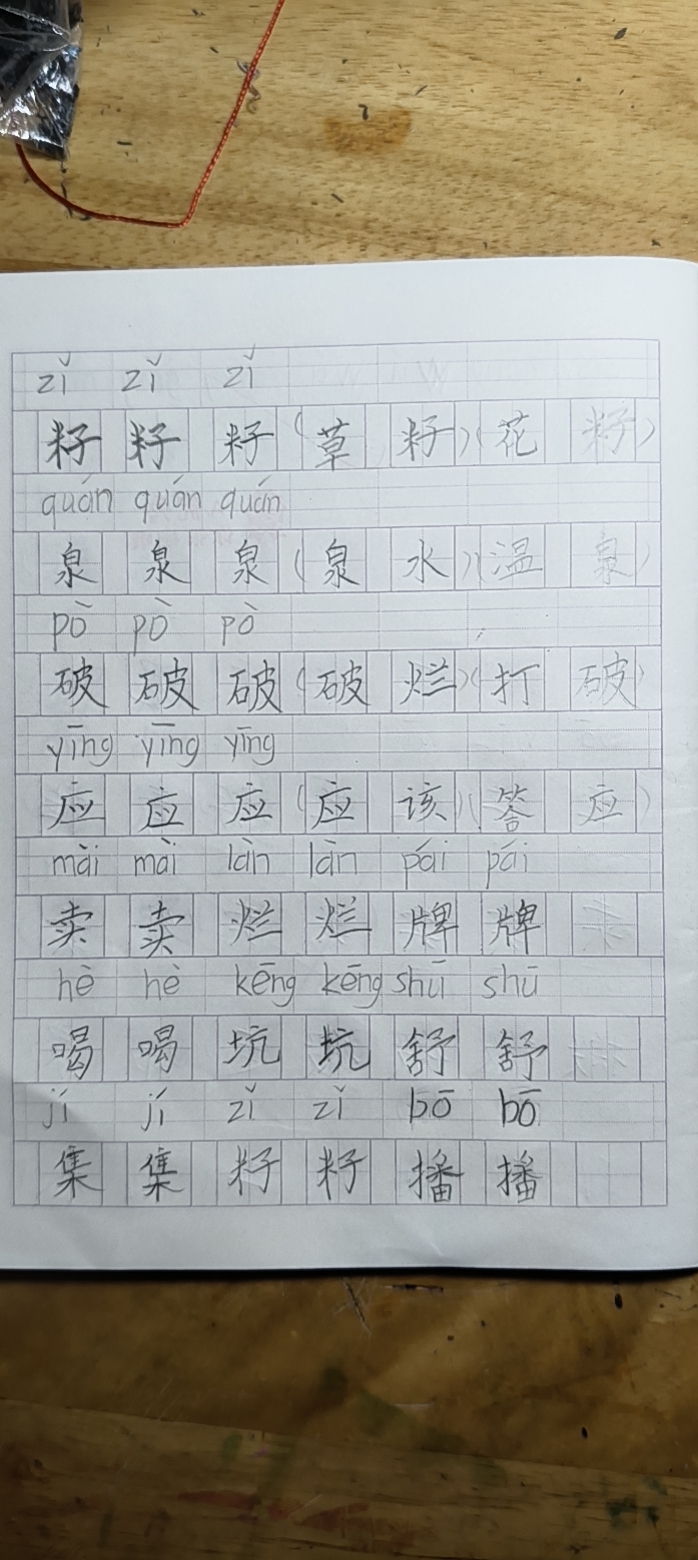 zǐ zǐ zǐ
籽 籽 籽 (草 籽)(花 籽)
quán quán quán
泉 泉 泉 (泉 水)(温 泉)
pò pò pò
破 破 破 (破 烂)(打 破)
yīng yīng yīng
应 应 应 (应 该)(答 应)
mài mài làn làn pái pái
卖 卖 烂 烂 牌 牌
hē hè kēng kēng shū shū
喝 喝 坑 坑 舒 舒
jí jí zǐ zǐ bō bō
集 集 籽 籽 播 播